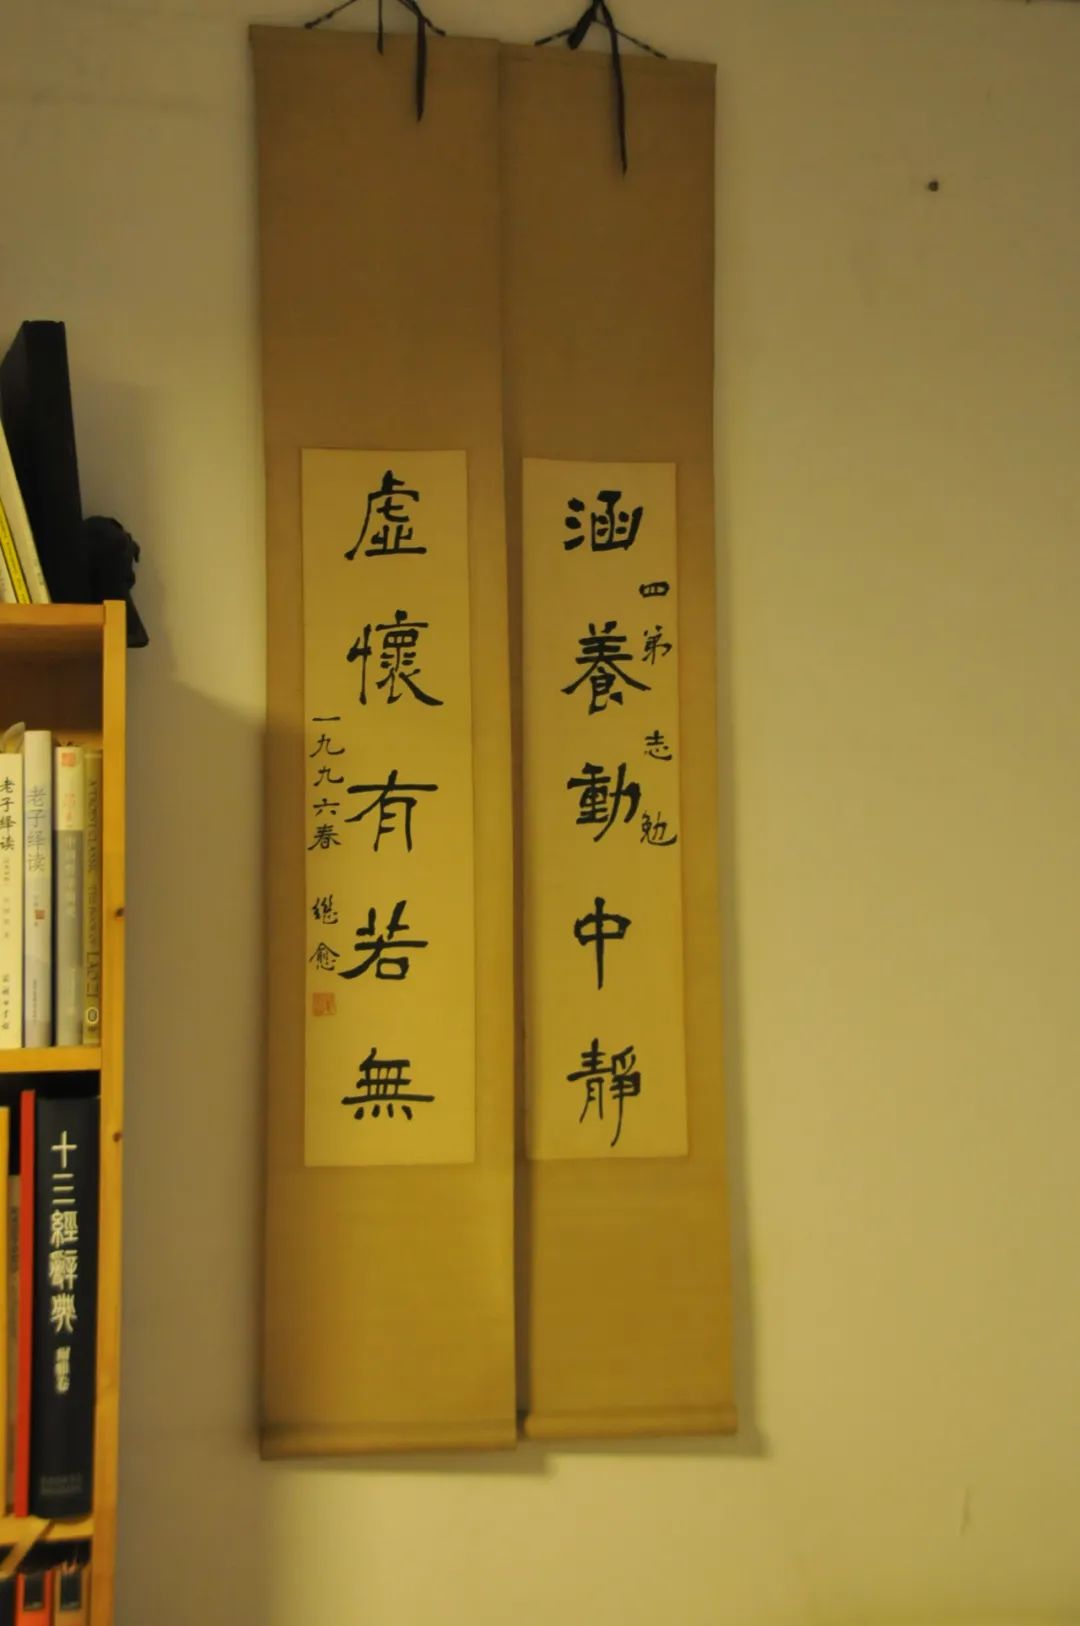 涵養動中靜
四弟志勉
虛懷有若無
一九九六春 继愈
老子绎读
老子绎读
十三經辭典